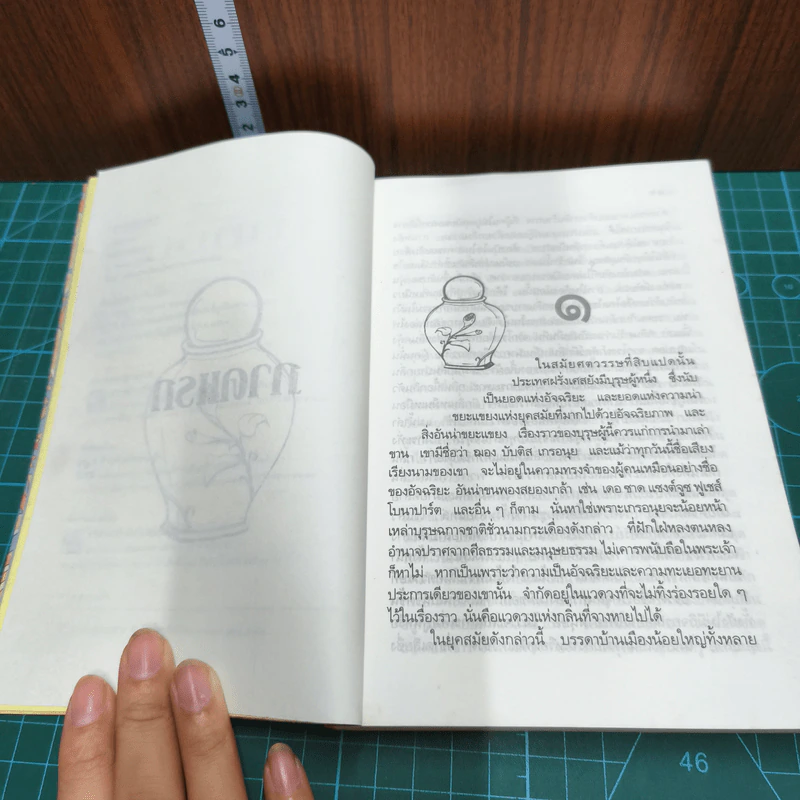 6
5
4
3
2
ภาคแรก
๑
ในสมัยศตวรรษที่สิบแปดนั้น
ประเทศฝรั่งเศสยังมีบุรุษผู้หนึ่ง ซึ่งนับ
เป็นยอดแห่งอัจฉริยะ และยอดแห่งความน่า
ขยะแขยงแห่งยุคสมัยที่มากไปด้วยอัจฉริยภาพ และ
สิ่งอันน่าขยะแขยง เรื่องราวของบุรุษผู้นี้ควรแก่การนำมาเล่า
ขาน เขามีชื่อว่า ฌอง บับติส เกรอนุย และแม้ว่าทุกวันนี้ชื่อเสียง
เรียงนามของเขา จะไม่อยู่ในความทรงจำของผู้คนเหมือนอย่างชื่อ
ของอัจฉริยะ อันน่าขนพองสยองเกล้า เช่น เดอ ซาด แซงต์จูซ ฟูเชส์
โบนาปาร์ต และอื่น ๆ ก็ตาม นั่นหาใช่เพราะเกรอนุยจะน้อยหน้า
เหล่าบุรุษฉกาจชาติชั่วนามกระเดื่องดังกล่าว ที่ฝักใฝ่หลงตนหลง
อำนาจปราศจากศีลธรรมและมนุษยธรรม ไม่เคารพนับถือในพระเจ้า
ก็หาไม่ หากเป็นเพราะว่าความเป็นอัจฉริยะและความทะเยอทะยาน
ประการเดียวของเขานั้น จำกัดอยู่ในแวดวงที่จะไม่ทิ้งร่องรอยใด ๆ
ไว้ในเรื่องราว นั่นคือแวดวงแห่งกลิ่นที่จางหายไปได้
ในยุคสมัยดังกล่าวนี้ บรรดาบ้านเมืองน้อยใหญ่ทั้งหลาย
46